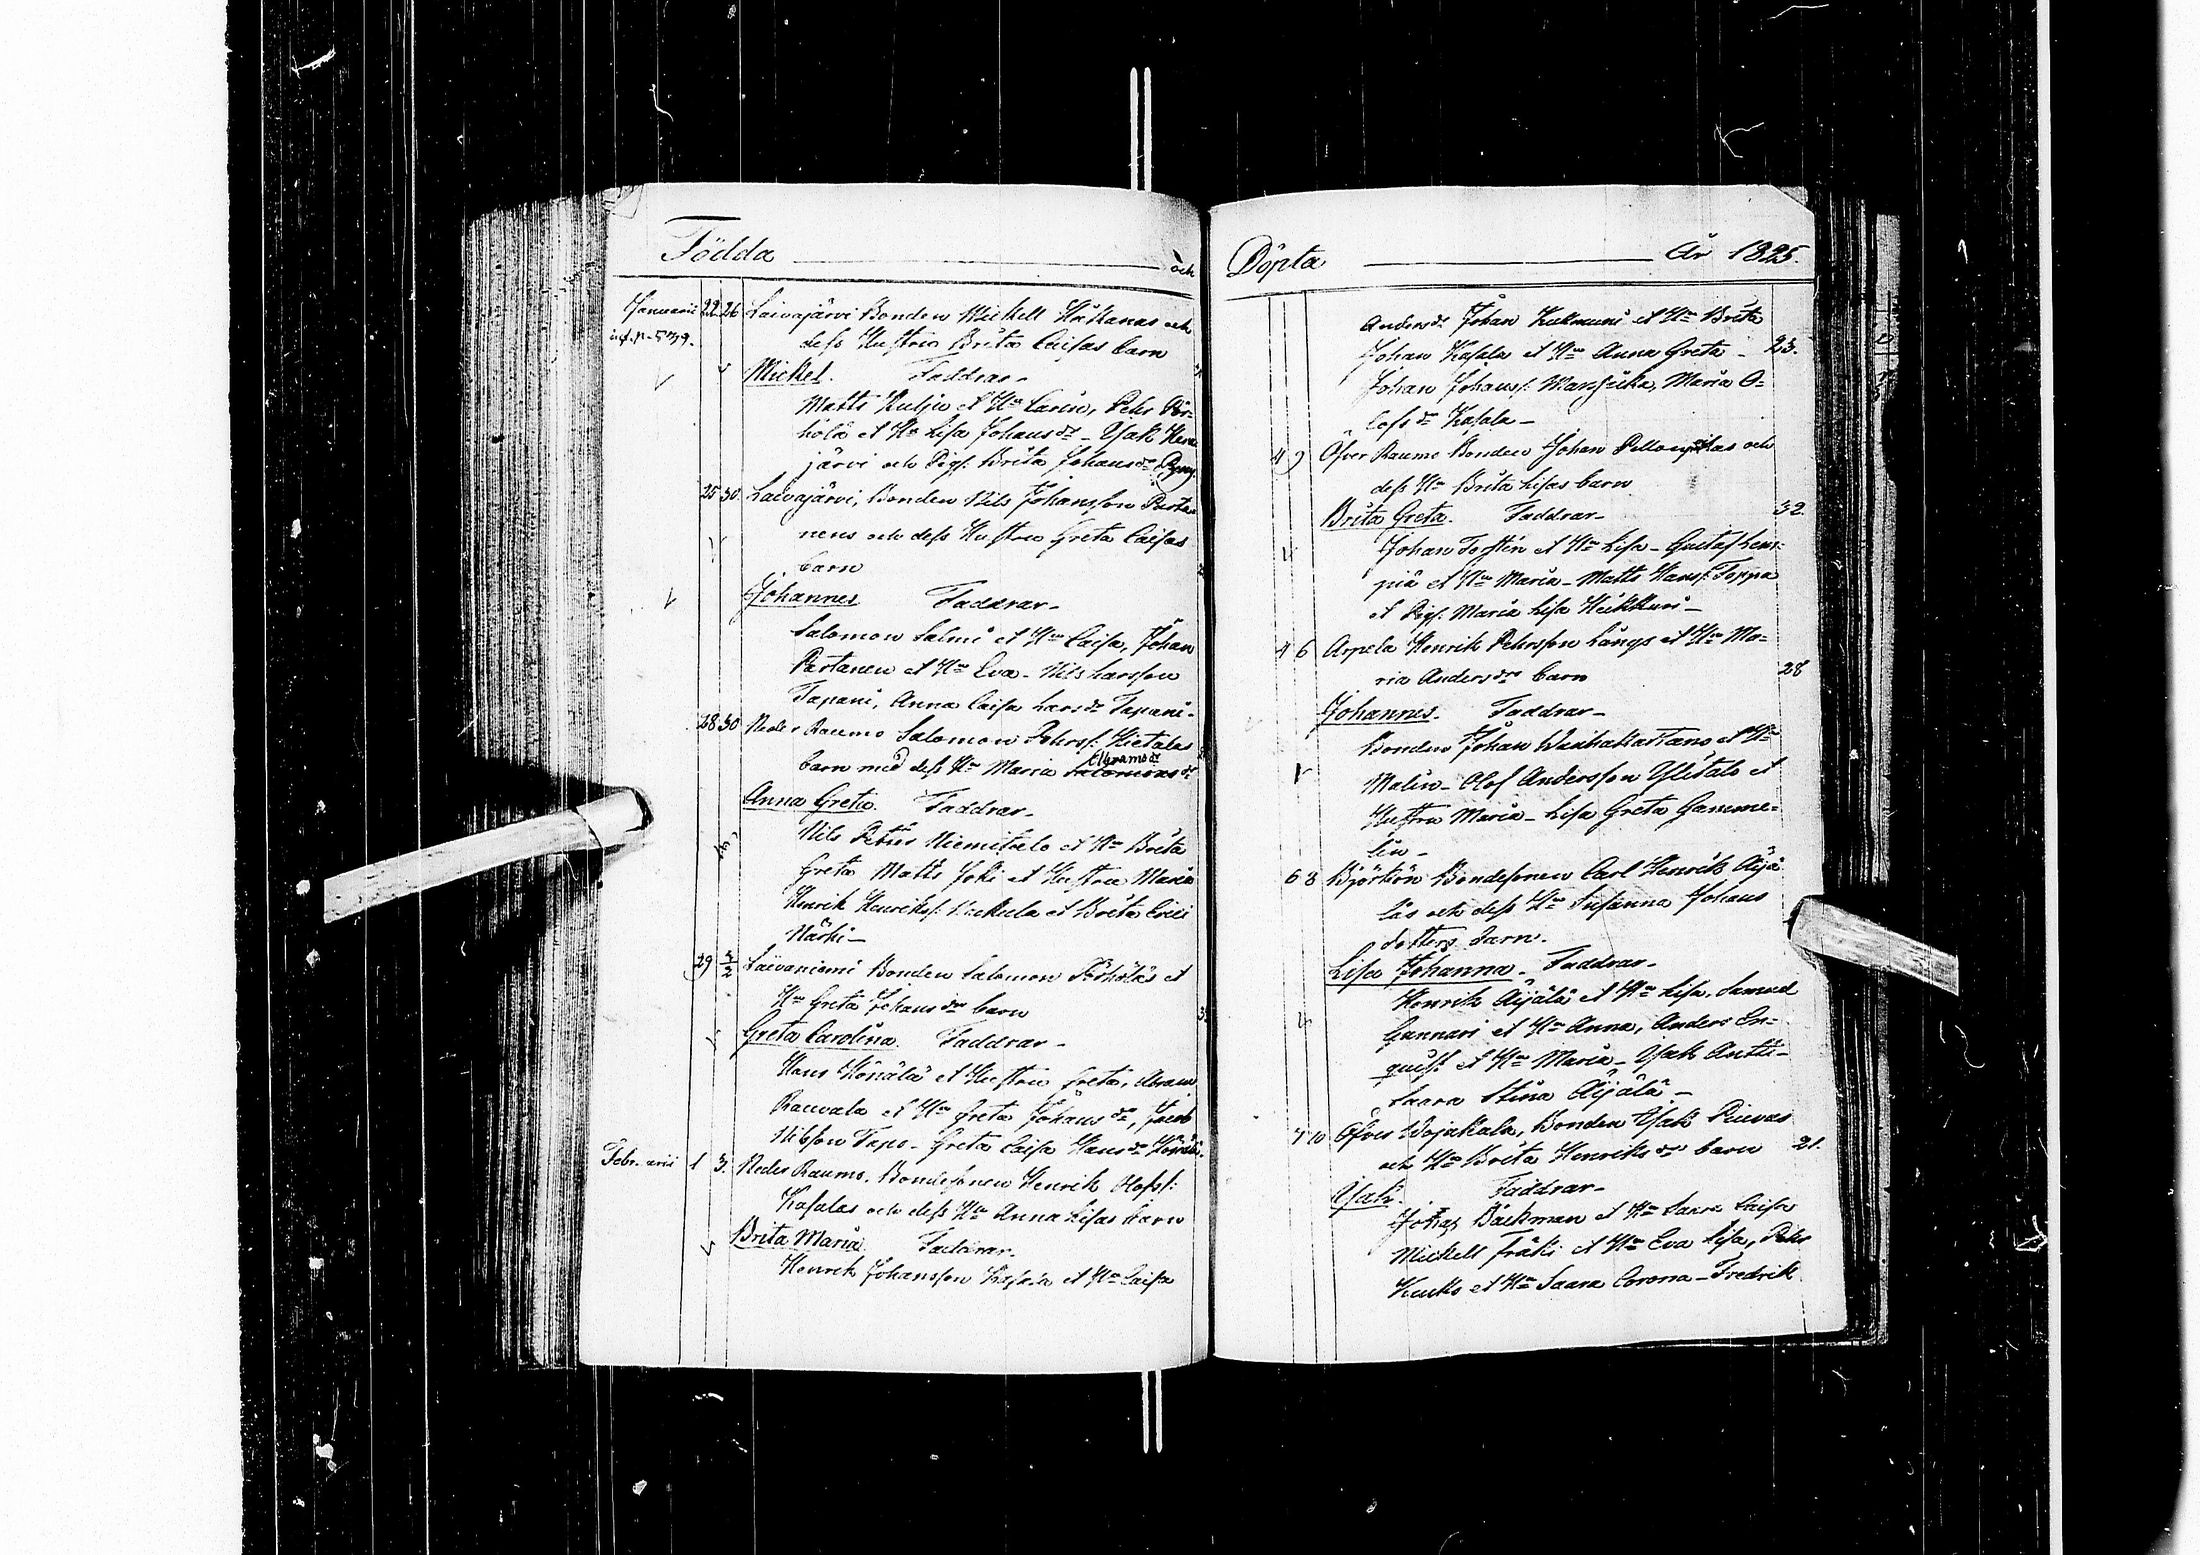 Födda och
Januarii 22 26 Laivajärvi Bonden Mickell Håkanas och
dess Hustrus Brita Caisas barn
Mickel. Faddrar.
Matts Kulju et Hu Carin, Pehr Pör-
hölä et Hu Lisa Johansdr - Isak Kena
järvi och Pigs: Brita Johansdr
25 30 Laivajärvi, Bonden Nils Johansson Parta-
nens och dess Hustru Greta Caisas
barn
Johannes Faddrar.
Salomon Salmi et Hu Caisa, Johan
Partanen et Hu Eva - Nils Larsson
Tapani, Anna Caisa Larsdr Tapani -
28 30 Neder Raumo Salomon Pehrss: Hietalas
Abramsdr
barn med dess Hu Maria Salomonsdr
Anna Greta. Faddrar.
Nils Petter Niemitalo et Hu Brita
Greta Matts Joki et Hustru Maria
Henrik Henrikss: et Brita Erici
Närhi -
29 3/2 Laivaniemi Bonden Salomon Pörhöläs et
Hu Greta Johansdrs barn
Greta Carolina. Faddrar -
Hans Könölä et Hustru Greta, Abram
Rauvala et Hu Greta Johansdr, Jacob
Nilsson Tapo - Greta Caisa Hansdr Könölä.
Februarii 1 3. Neder Raumo. Bondesonen Henrik Olofss:
Kasalas och dess Hu Anna Lisas barn
Brita Maria Faddrar.
Henrik Johansson Kasala et Hu Caisa
Döpta År 1825.
Andersdr Johan Kukmuni et Hu Brita
Johan Kasala et Hu Anna Greta - 23.
Johan Johanss: Maria O-
lofsdr Kasala -
4 9 Öfver Raumo Bonden Johan och
dess Hu Brita Lisas barn
Brita Greta. Faddrar - 32.
Johan Torstén et Hu Lisa - Gustaf Lem-
piä et Hu Maria - Matts Hanss: Toppa
et Pigs: Maria Lisa Heikkuri -
4 6 Arpela Henrik Pehrsson Långs et Hu Ma-
ria Andersdrs barn 28
Johannes. Faddrar -
Bonden Johan Wanhakartano et Hu
Malin - Olof Andersson Ylitalo et
Hustru Maria - Lisa Greta Gamme-
lin -
6 8 Björkön Bondesonen Carl Henrik Äijä
läs och dess Hu Susanna Johans
dotters barn.
Lisa Johanna - Faddrar -
Henrik Äijälä et Hu Lisa, Samuel
Gunnari et Hu Anna, Anders En-
quist et Hu Maria - Isak Antti -
Saara Stina Äijälä -
7 10 Öfver Wojakala, Bonden Isak Pievas
och Hu Brita Henriksdrs barn 21.
Isak. Faddrar -
Johan Bäckman et Hu Saara Caisa
Mickell Fräki et Hu Eva Lisa, Pehr
Kuuks et Hu Saara Corona - Fredrik